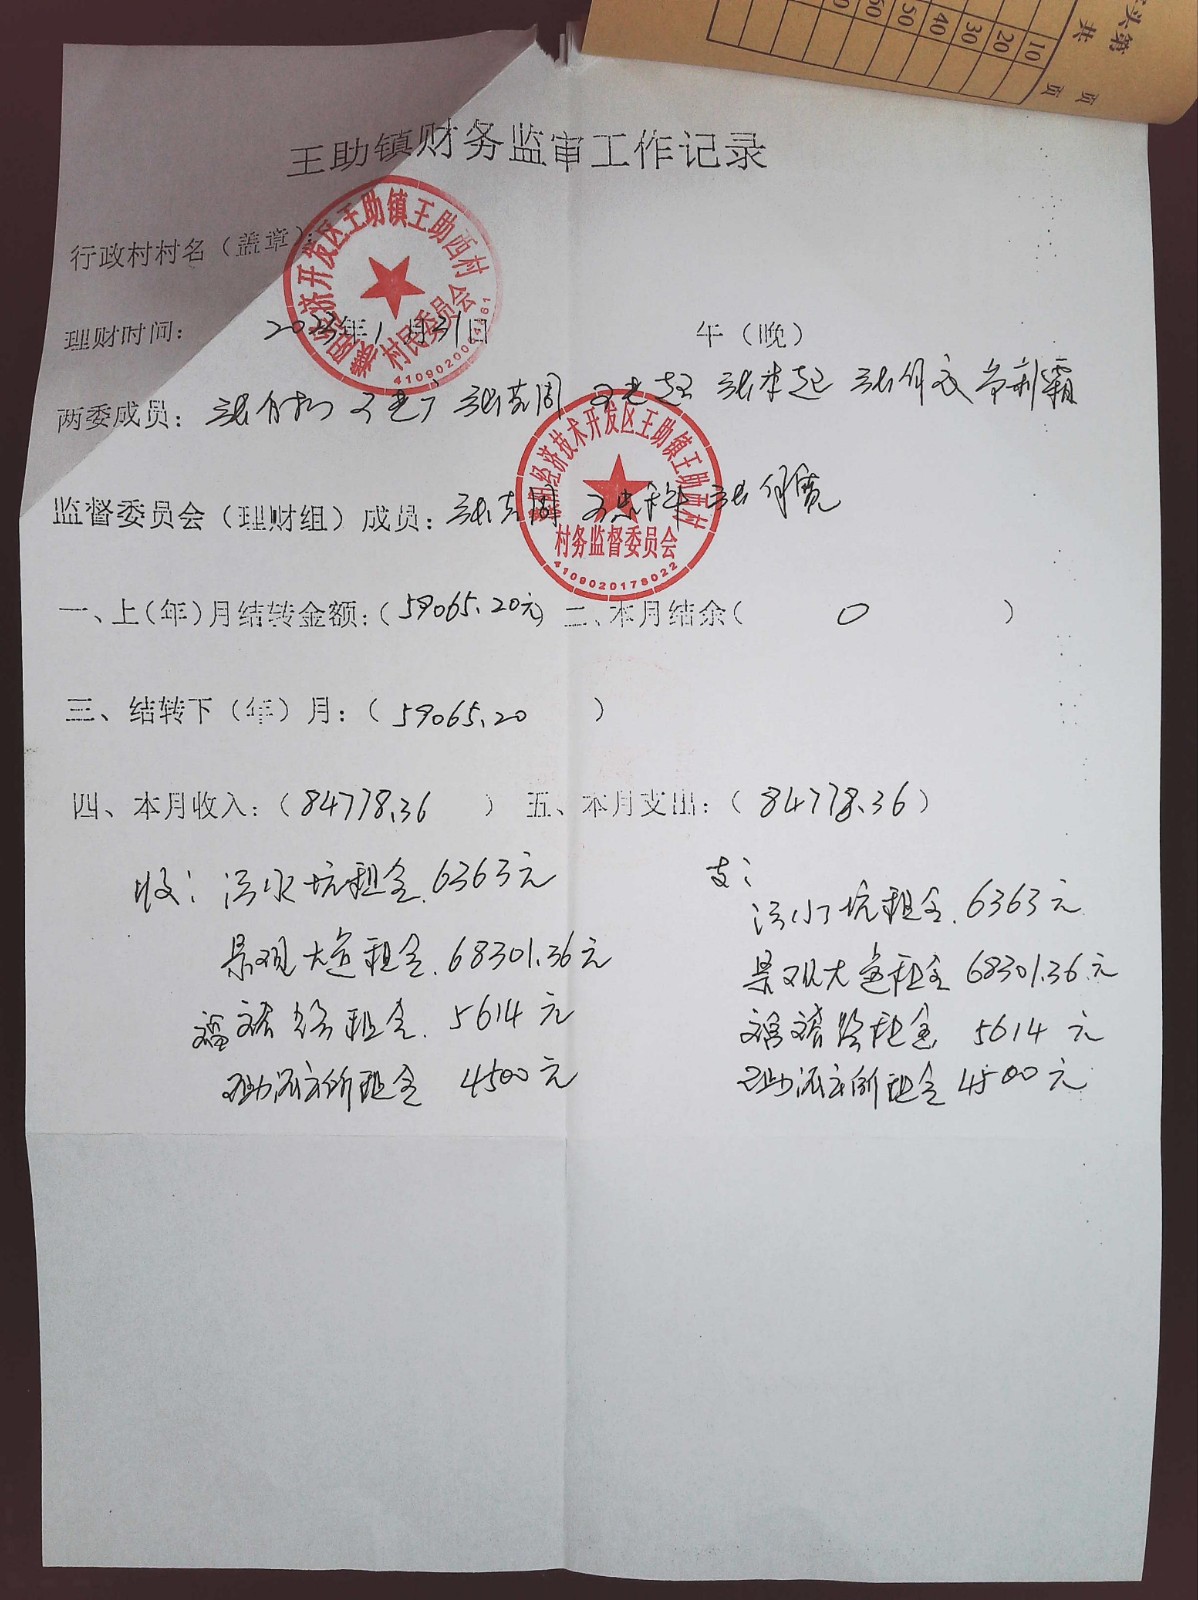 10
20
30
40
50
60
共
页
页
王助镇财务监审工作记录
行政村村名（盖章）：
濮阳经济开发区王助镇王助西村
村民委员会
理财时间： 2023年1月31日 午（晚）
两委成员：
濮阳经济技术开发区王助镇王助西村
村务监督委员会
4109020178022
监督委员会（理财组）成员：
一、上（年）月结转金额：（59065.20元） 二、本月结余（ 0 ）
三、结转下（年）月：（59065.20 ）
四、本月收入：（84778.36 ） 五、本月支出：（84778.36）
收： 污水坑租金 6363元
支：
污水坑租金 6363元
景观大道租金 68301.36元
景观大道租金 68301.36元
租金 5614元
租金 5614元
王助派出所租金 4500元
王助派出所租金 4500元